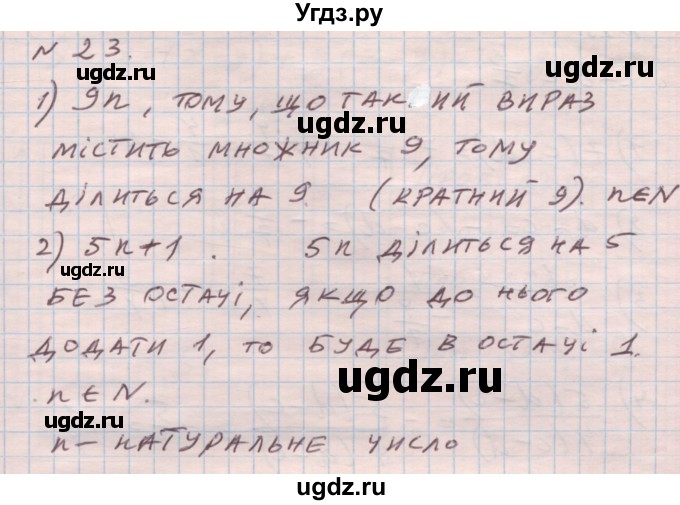 Угдз.ру
N 23.
1) 9n, тому, що такий вираз
ugdz.ru
містить множник 9, тому
ділиться на 9. (кратний 9). n∈N
ugdz.ru
2) 5n+1. 5n ділиться на 5
ugdz.ru
без остачі, якщо до нього
додати 1, то буде в остачі 1.
ugdz.ru
n∈N.
n – натуральне число
ugdz.ru
ugdz.ru